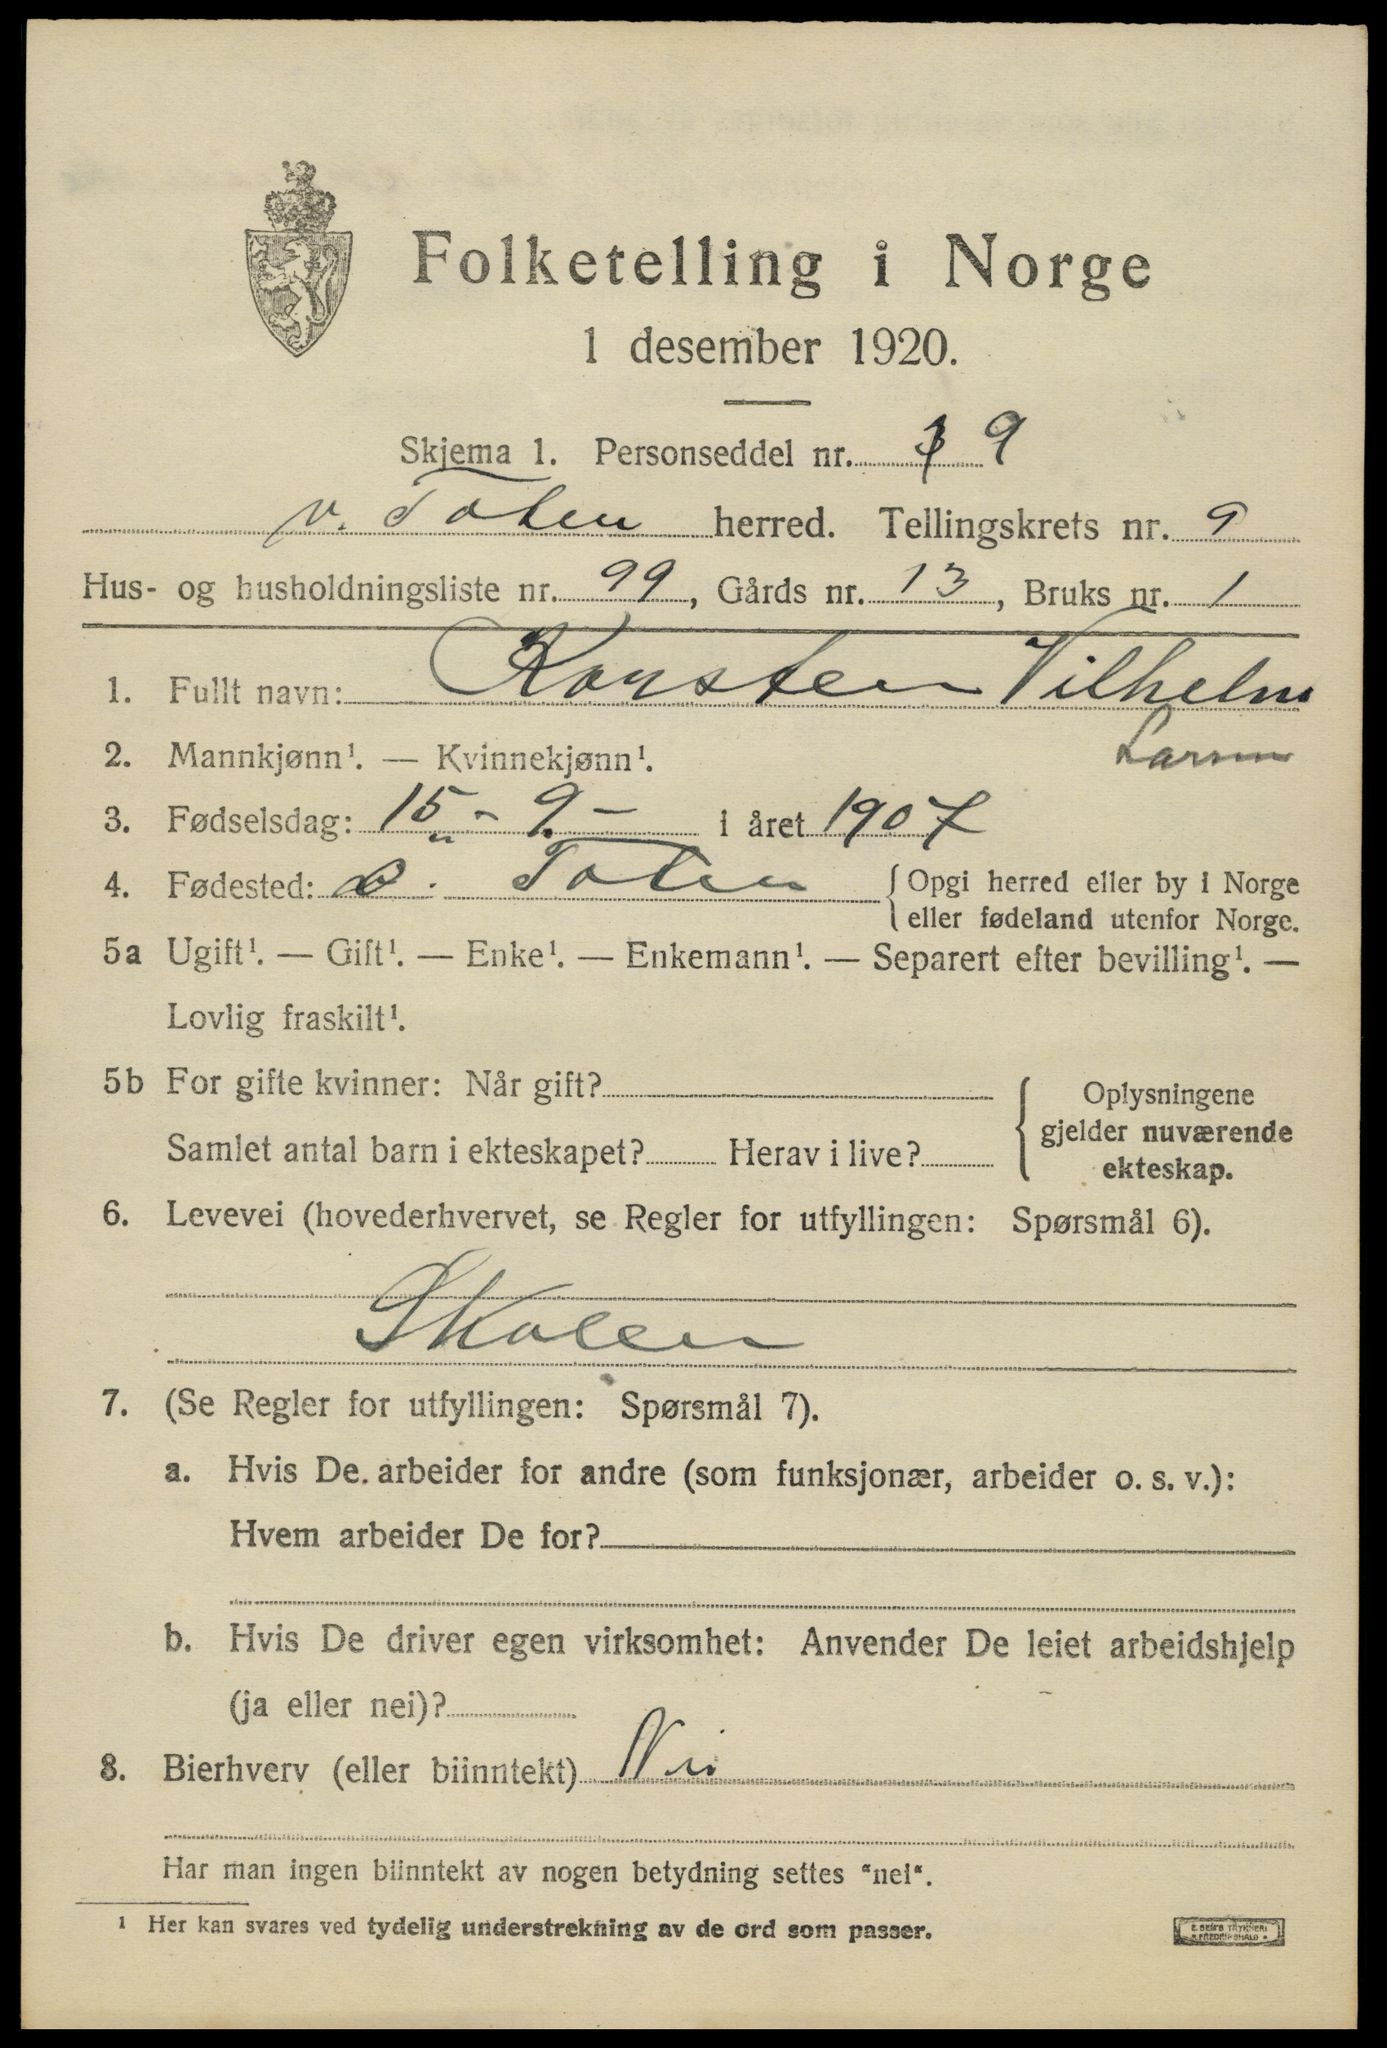 Folketelling i Norge
1 desember 1920.
Skjema 1. Personseddel nr. 9
v. Toten herred. Tellingskrets nr. 9
Hus- og husholdningsliste nr. 99, Gårds nr. 13, Bruks nr. 1
1. Fullt navn: Karsten Vilhelm
Larsen
2. Mannkjønn¹. — Kvinnekjønn¹.
3. Fødselsdag: 15 - 9 - i året 1907
4. Fødested: Toten {Opgi herred eller by i Norge
eller fødeland utenfor Norge.
5a Ugift¹. — Gift¹. — Enke¹. — Enkemann¹. — Separert efter bevilling¹. —
Lovlig fraskilt¹.
5b For gifte kvinner: Når gift? Oplysningene
gjelder nuværende
Samlet antal barn i ekteskapet? Herav i live? ekteskap.
6. Levevei (hovederhvervet, se Regler for utfyllingen: Spørsmål 6).
Skolen
7. (Se Regler for utfyllingen: Spørsmål 7).
a. Hvis De arbeider for andre (som funksjonær, arbeider o. s. v.):
Hvem arbeider De for?
b. Hvis De driver egen virksomhet: Anvender De leiet arbeidshjelp
(ja eller nei)?
8. Bierhverv (eller biinntekt) Nei
Har man ingen biinntekt av nogen betydning settes "nei".
¹ Her kan svares ved tydelig understrekning av de ord som passer.
E. SEM'S TRYKKERI
FREDRIKSHALD